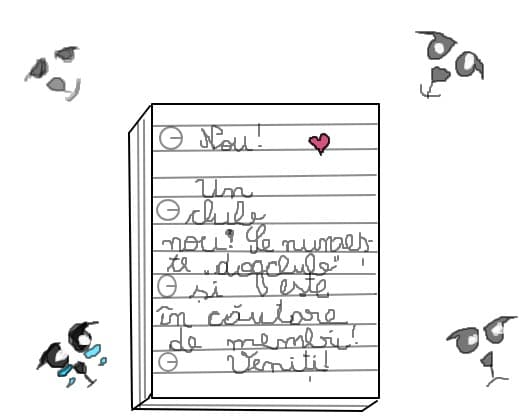 Nou!
Un
club
nou! Se numeș-
te „dogclub"
și este
în căutare
de membri!
Veniți!